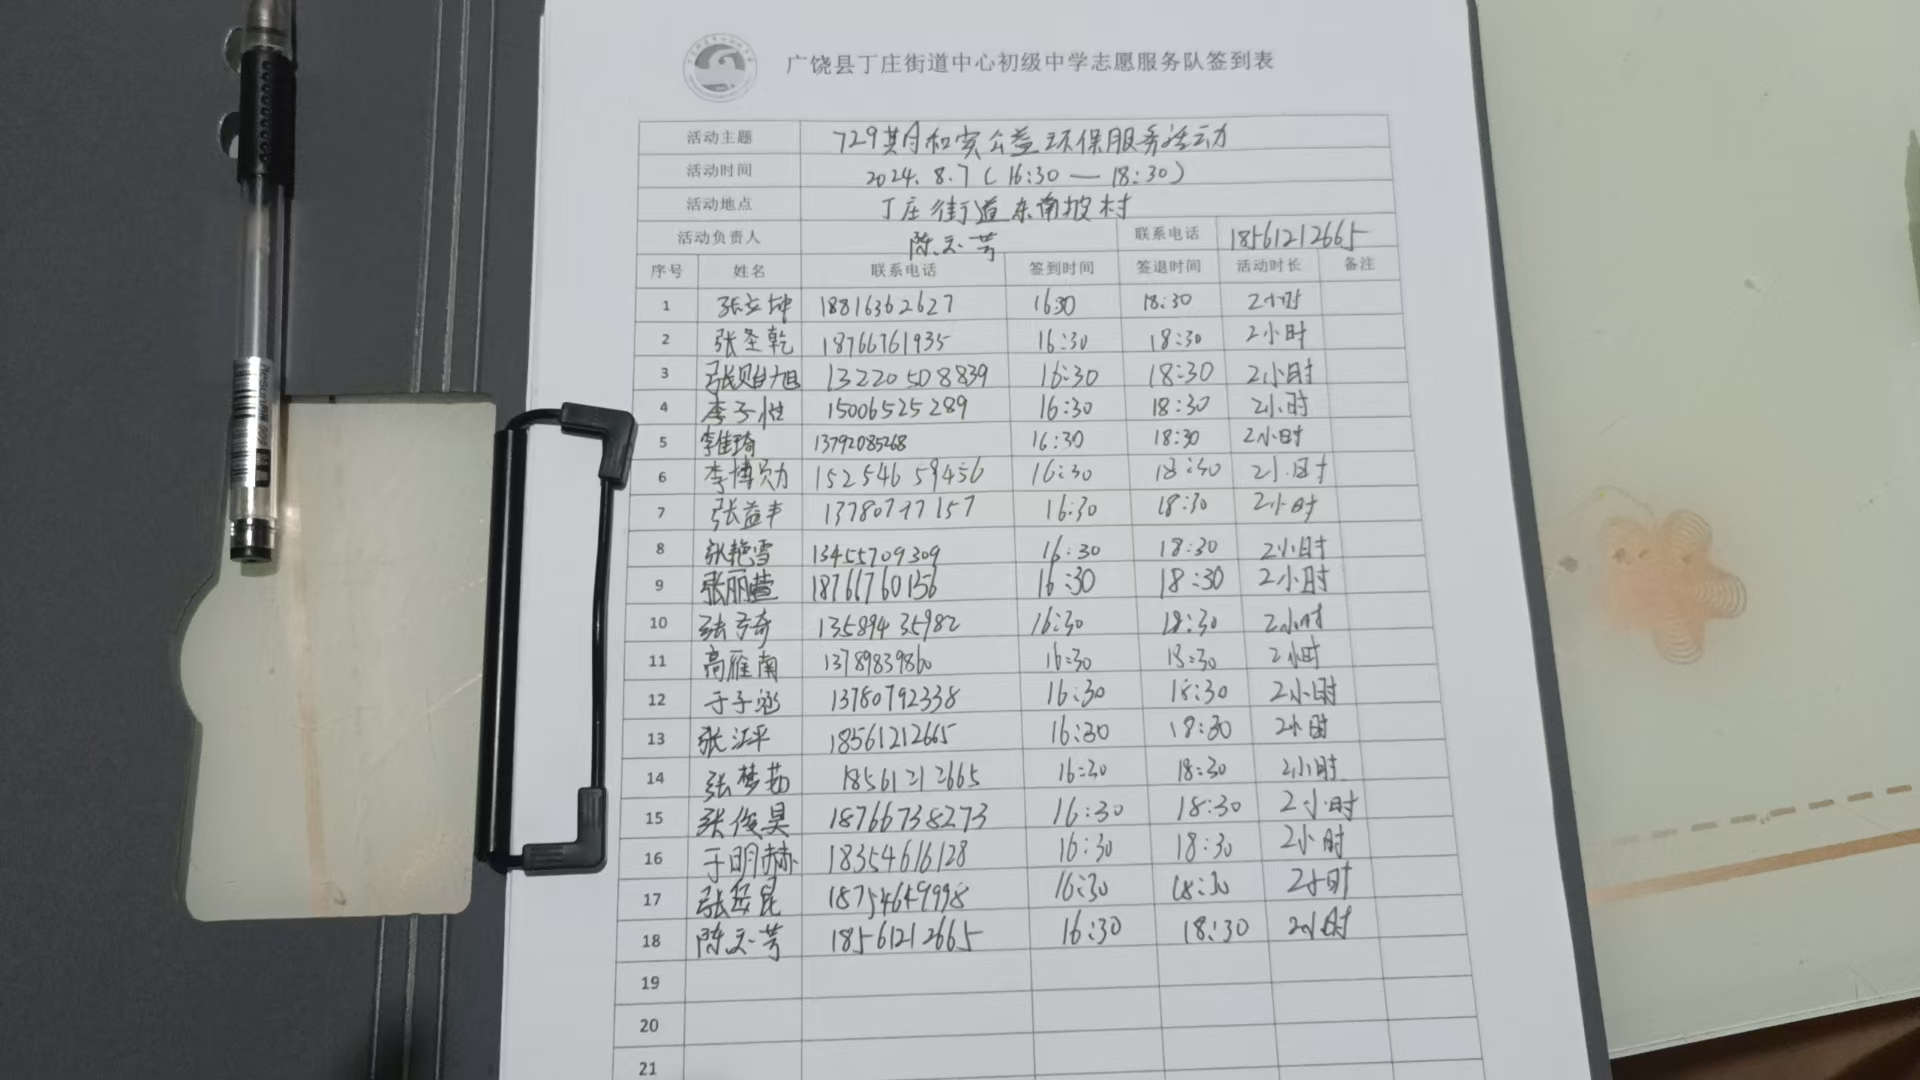 广饶县丁庄街道中心初级中学志愿服务队签到表
活动主题 729期和实公益环保服务活动
活动时间 2024.8.7(16:30—18:30)
活动地点 丁庄街道东南坡村
活动负责人 陈文芳 联系电话 18561212665
序号 姓名 联系电话 签到时间 签退时间 活动时长 备注
1 张立坤 18816362627 16:30 18:30 2小时
2 张圣乾 18766761935 16:30 18:30 2小时
3 张贻旭 13220508839 16:30 18:30 2小时
4 李子恒 15006525289 16:30 18:30 2小时
5 李佳琦 13792085268 16:30 18:30 2小时
6 李博勋 15254659456 16:30 18:30 2小时
7 张益丰 13780777157 16:30 18:30 2小时
8 张艳雪 13455709309 16:30 18:30 2小时
9 张丽萱 18766760156 16:30 18:30 2小时
10 张奇 13589435982 16:30 18:30 2小时
11 高雁南 13789839860 16:30 18:30 2小时
12 于子涵 13780792338 16:30 18:30 2小时
13 张江平 18561212665 16:30 18:30 2小时
14 张梦茹 18561212665 16:30 18:30 2小时
15 张俊昊 18766738273 16:30 18:30 2小时
16 于明赫 18354616128 16:30 18:30 2小时
17 张昆 18754649998 16:30 18:30 2小时
18 陈文芳 18561212665 16:30 18:30 2小时
19
20
21